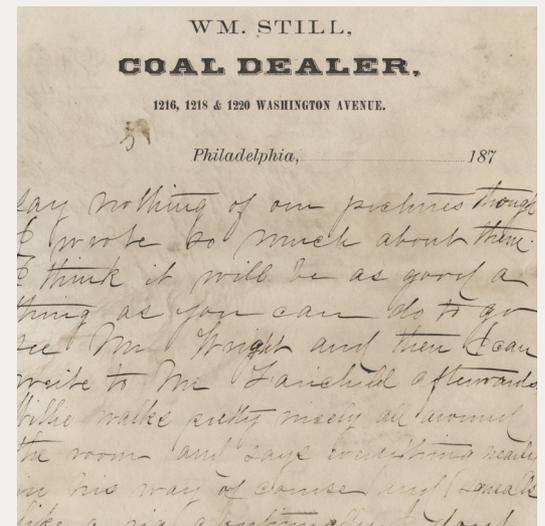 WM. STILL,
COAL DEALER,
1216, 1218 & 1220 WASHINGTON AVENUE.
5
Philadelphia, 187
say nothing of our pictures though
I wrote so much about them.
I think it will be as good a
thing as you can do to go
see Mr Wright and then I can
write to Mr Fairchild afterwards
Willie walks pretty nicely all around
the room and says everything nearly
in his way of course and squeals
like a pig